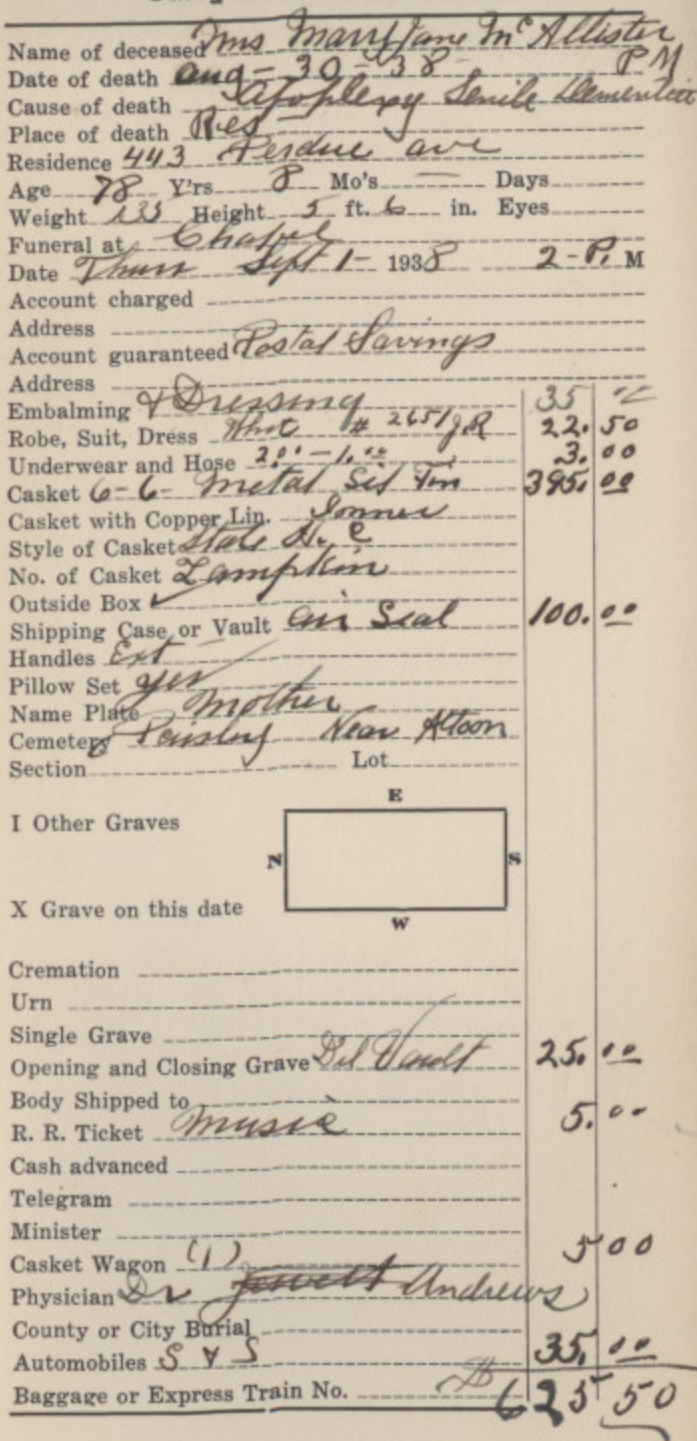 Name of deceased Mrs Mary Jane McAllister
Date of death Aug - 30 - 38 PM
Cause of death Apoplexy Senile Dementia
Place of death Res
Residence 443 Perdue ave
Age 78 Y'rs 8 Mo's — Days
Weight 135 Height 5 ft. 6 in. Eyes
Funeral at Chapel
Date Thurs Sept 1 - 1938 2 - P. M
Account charged
Address
Account guaranteed Postal Savings
Address
Embalming & Dressing 35
Robe, Suit, Dress # 2651 J.R 22.50
Underwear and Hose 2.00 - 1.00 3.00
Casket 6-6- Metal Sil 395.00
Casket with Copper Lin.
Style of Casket State
No. of Casket Lampkin
Outside Box ✓
Shipping Case or Vault Air Seal 100.00
Handles Ext
Pillow Set yes
Name Plate Mother
Cemetery Near
Section Lot
E
I Other Graves
N S
X Grave on this date
W
Cremation
Urn
Single Grave
Opening and Closing Grave Del Vault 25.00
Body Shipped to
R. R. Ticket Music 5.00
Cash advanced
Telegram
Minister
Casket Wagon (1) 5 00
Physician Dr Jewett Andrews
County or City Burial
Automobiles S & S 35.00
Baggage or Express Train No. 625 50